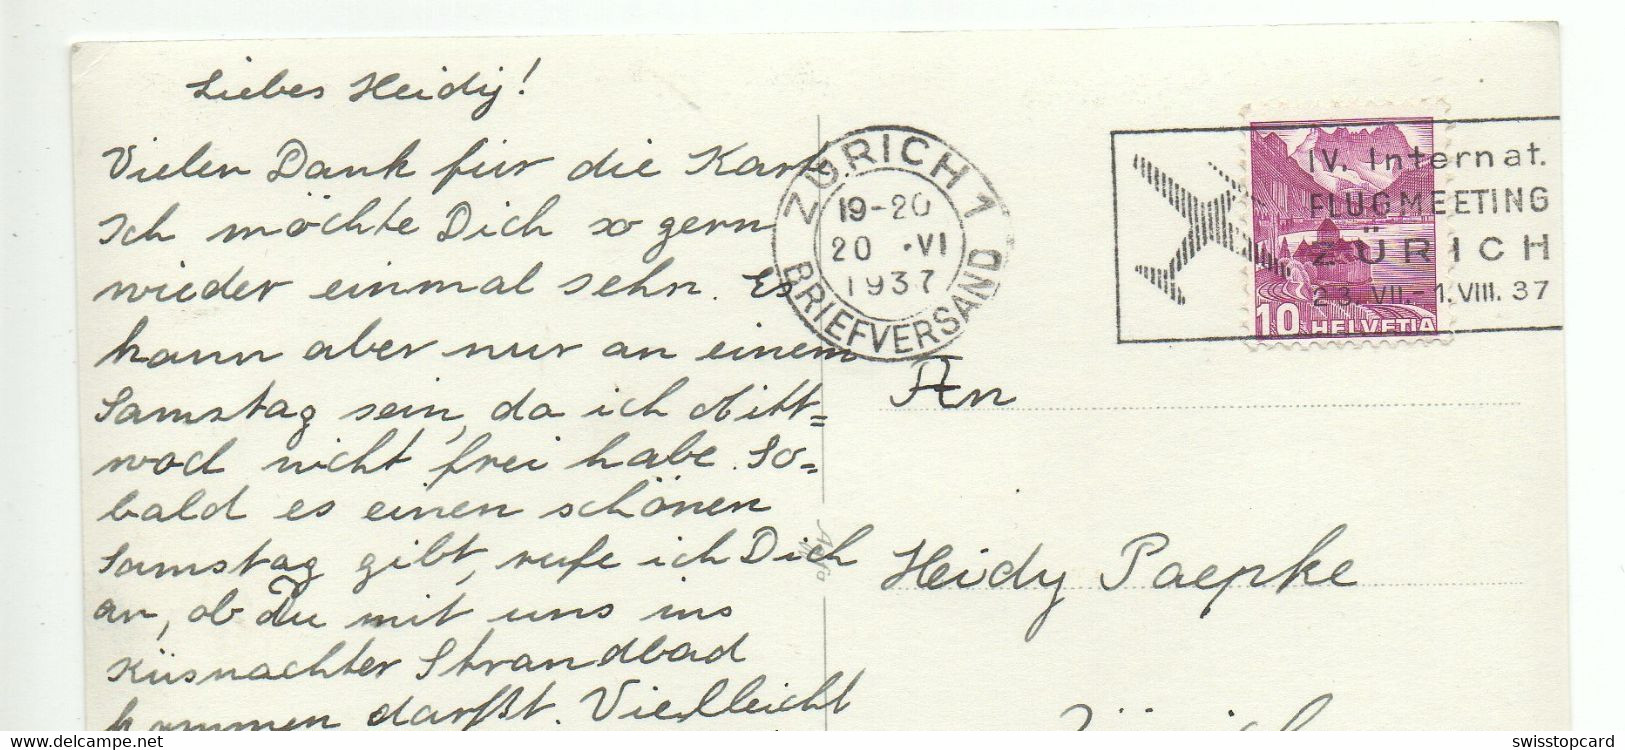 Liebes Heidy!
Vielen Dank für die Karte.
Ich möchte Dich so gern
wieder einmal sehn. Es
kann aber nur an einem
Samstag sein, da ich Mitt=
woch nicht frei habe. So=
bald es einen schönen
Samstag gibt, rufe ich Dich
an, ob Du mit uns ins
Küsnachter Strandbad
kommen darfst. Vielleicht
ZÜRICH 1
19-20
20 . VI
1937
BRIEFVERSAND
IV. Internat.
FLUGMEETING
ZÜRICH
23. VII.-1. VIII. 37
10 HELVETIA
An
Heidy Paepke
Zürich
swisstopcard